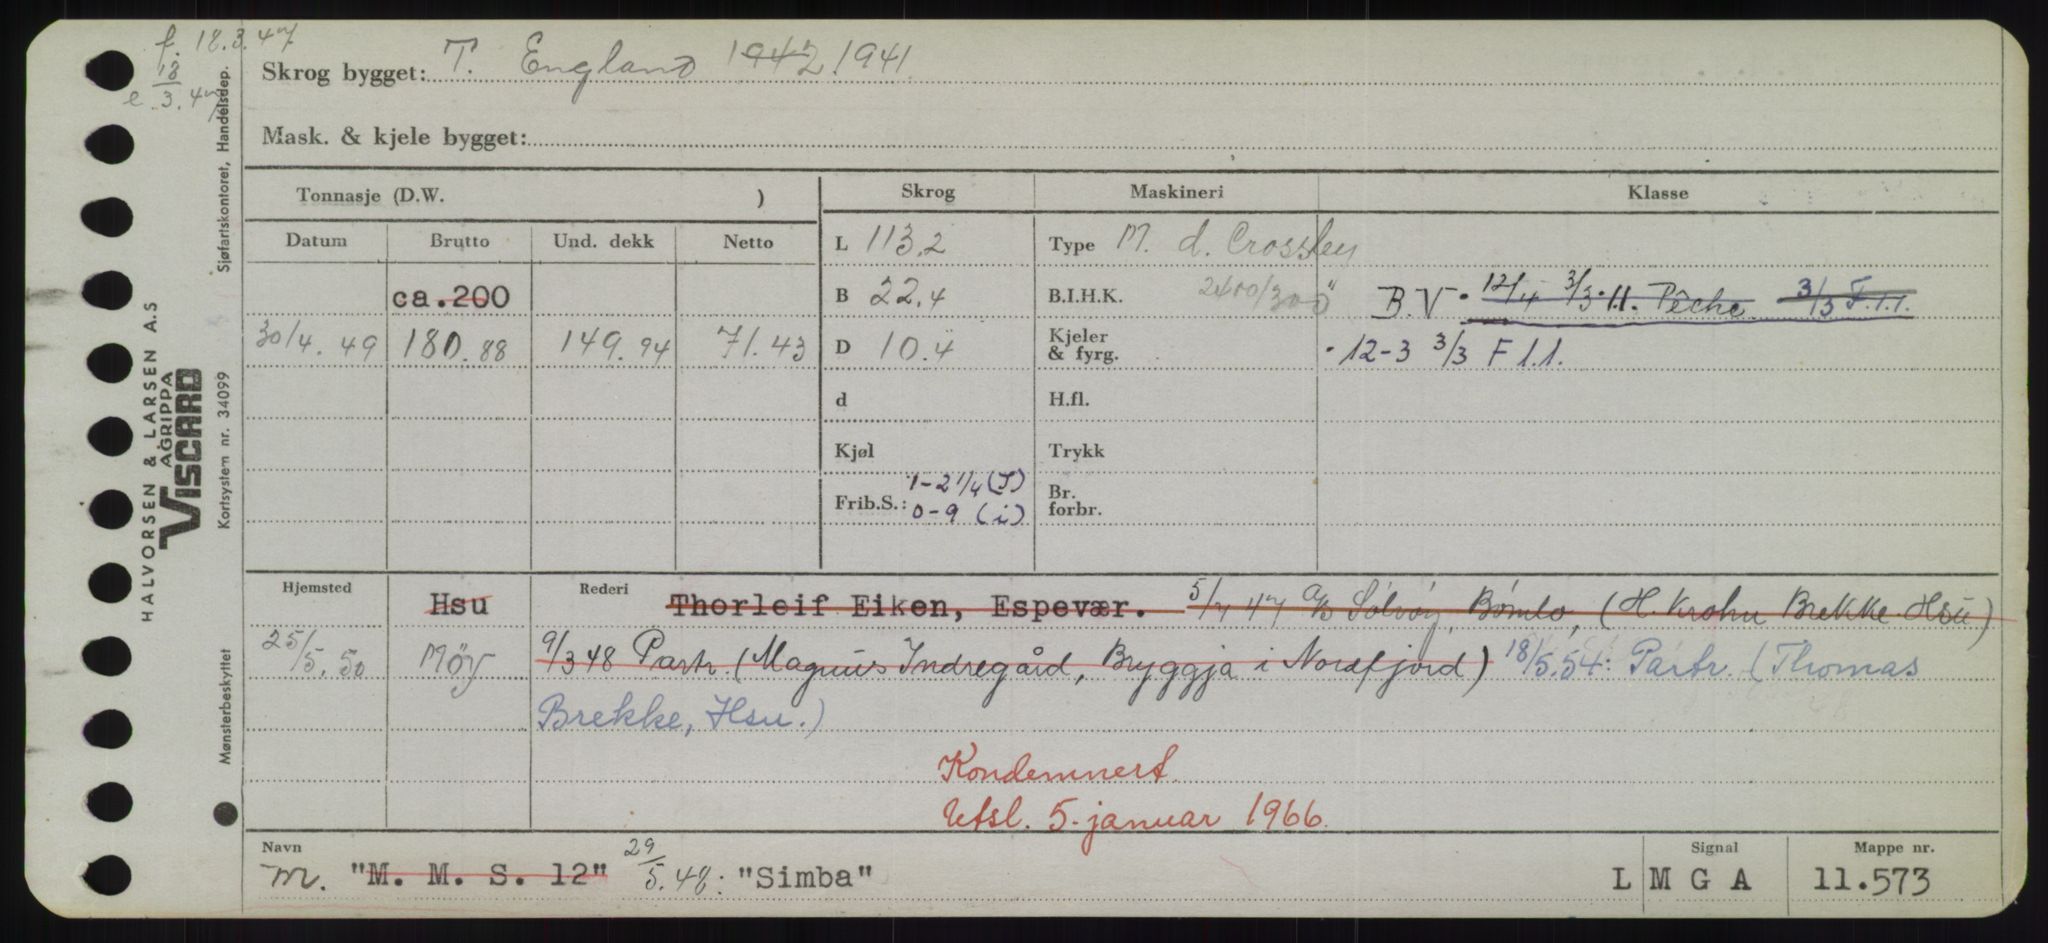 f. 18.3.47
e. 18/3.47
Skrog bygget: T. England 1942 1941
Mask. & kjele bygget:
Tonnasje (D.W. )
Skrog
Maskineri
Klasse
Datum Brutto Und. dekk Netto
L 113,2
Type M. d. Crossley
ca.200
B 22,4
B.I.H.K. 2400/300"
B.V. 12/4 3/3.1.1. Pêche 3/3 F.1.1.
30/4.49 180.88 149.94 71.43
D 10.4
Kjeler & fyrg.
12-3 3/3 F 1.1.
d
H.fl.
Kjøl
Trykk
Frib.S.: 1-2 1/4 (J)
0-9 (i)
Br. forbr.
Hjemsted
Rederi
Hsu Thorleif Eiken, Espevær. 5/7 47 A/S Sølvøy, Bømlo, (H. Krohn Brekke Hsu)
25/5.50 Möy 9/3 48 Partr. (Magnus Indregård, Bryggja i Nordfjord) 18/5.54: Partr. (Thomas
Brekke, Hsu.)
Kondemnert.
Utsl. 5. januar 1966.
Navn
Signal
Mappe nr.
m. "M. M. S. 12" 29/5.48: "Simba" L M G A 11.573
HALVORSEN & LARSEN A.S
AGRIPPA
VISCARD
Mønsterbeskyttet
Kortsystem nr. 34099
Sjøfartskontoret, Handelsdep.